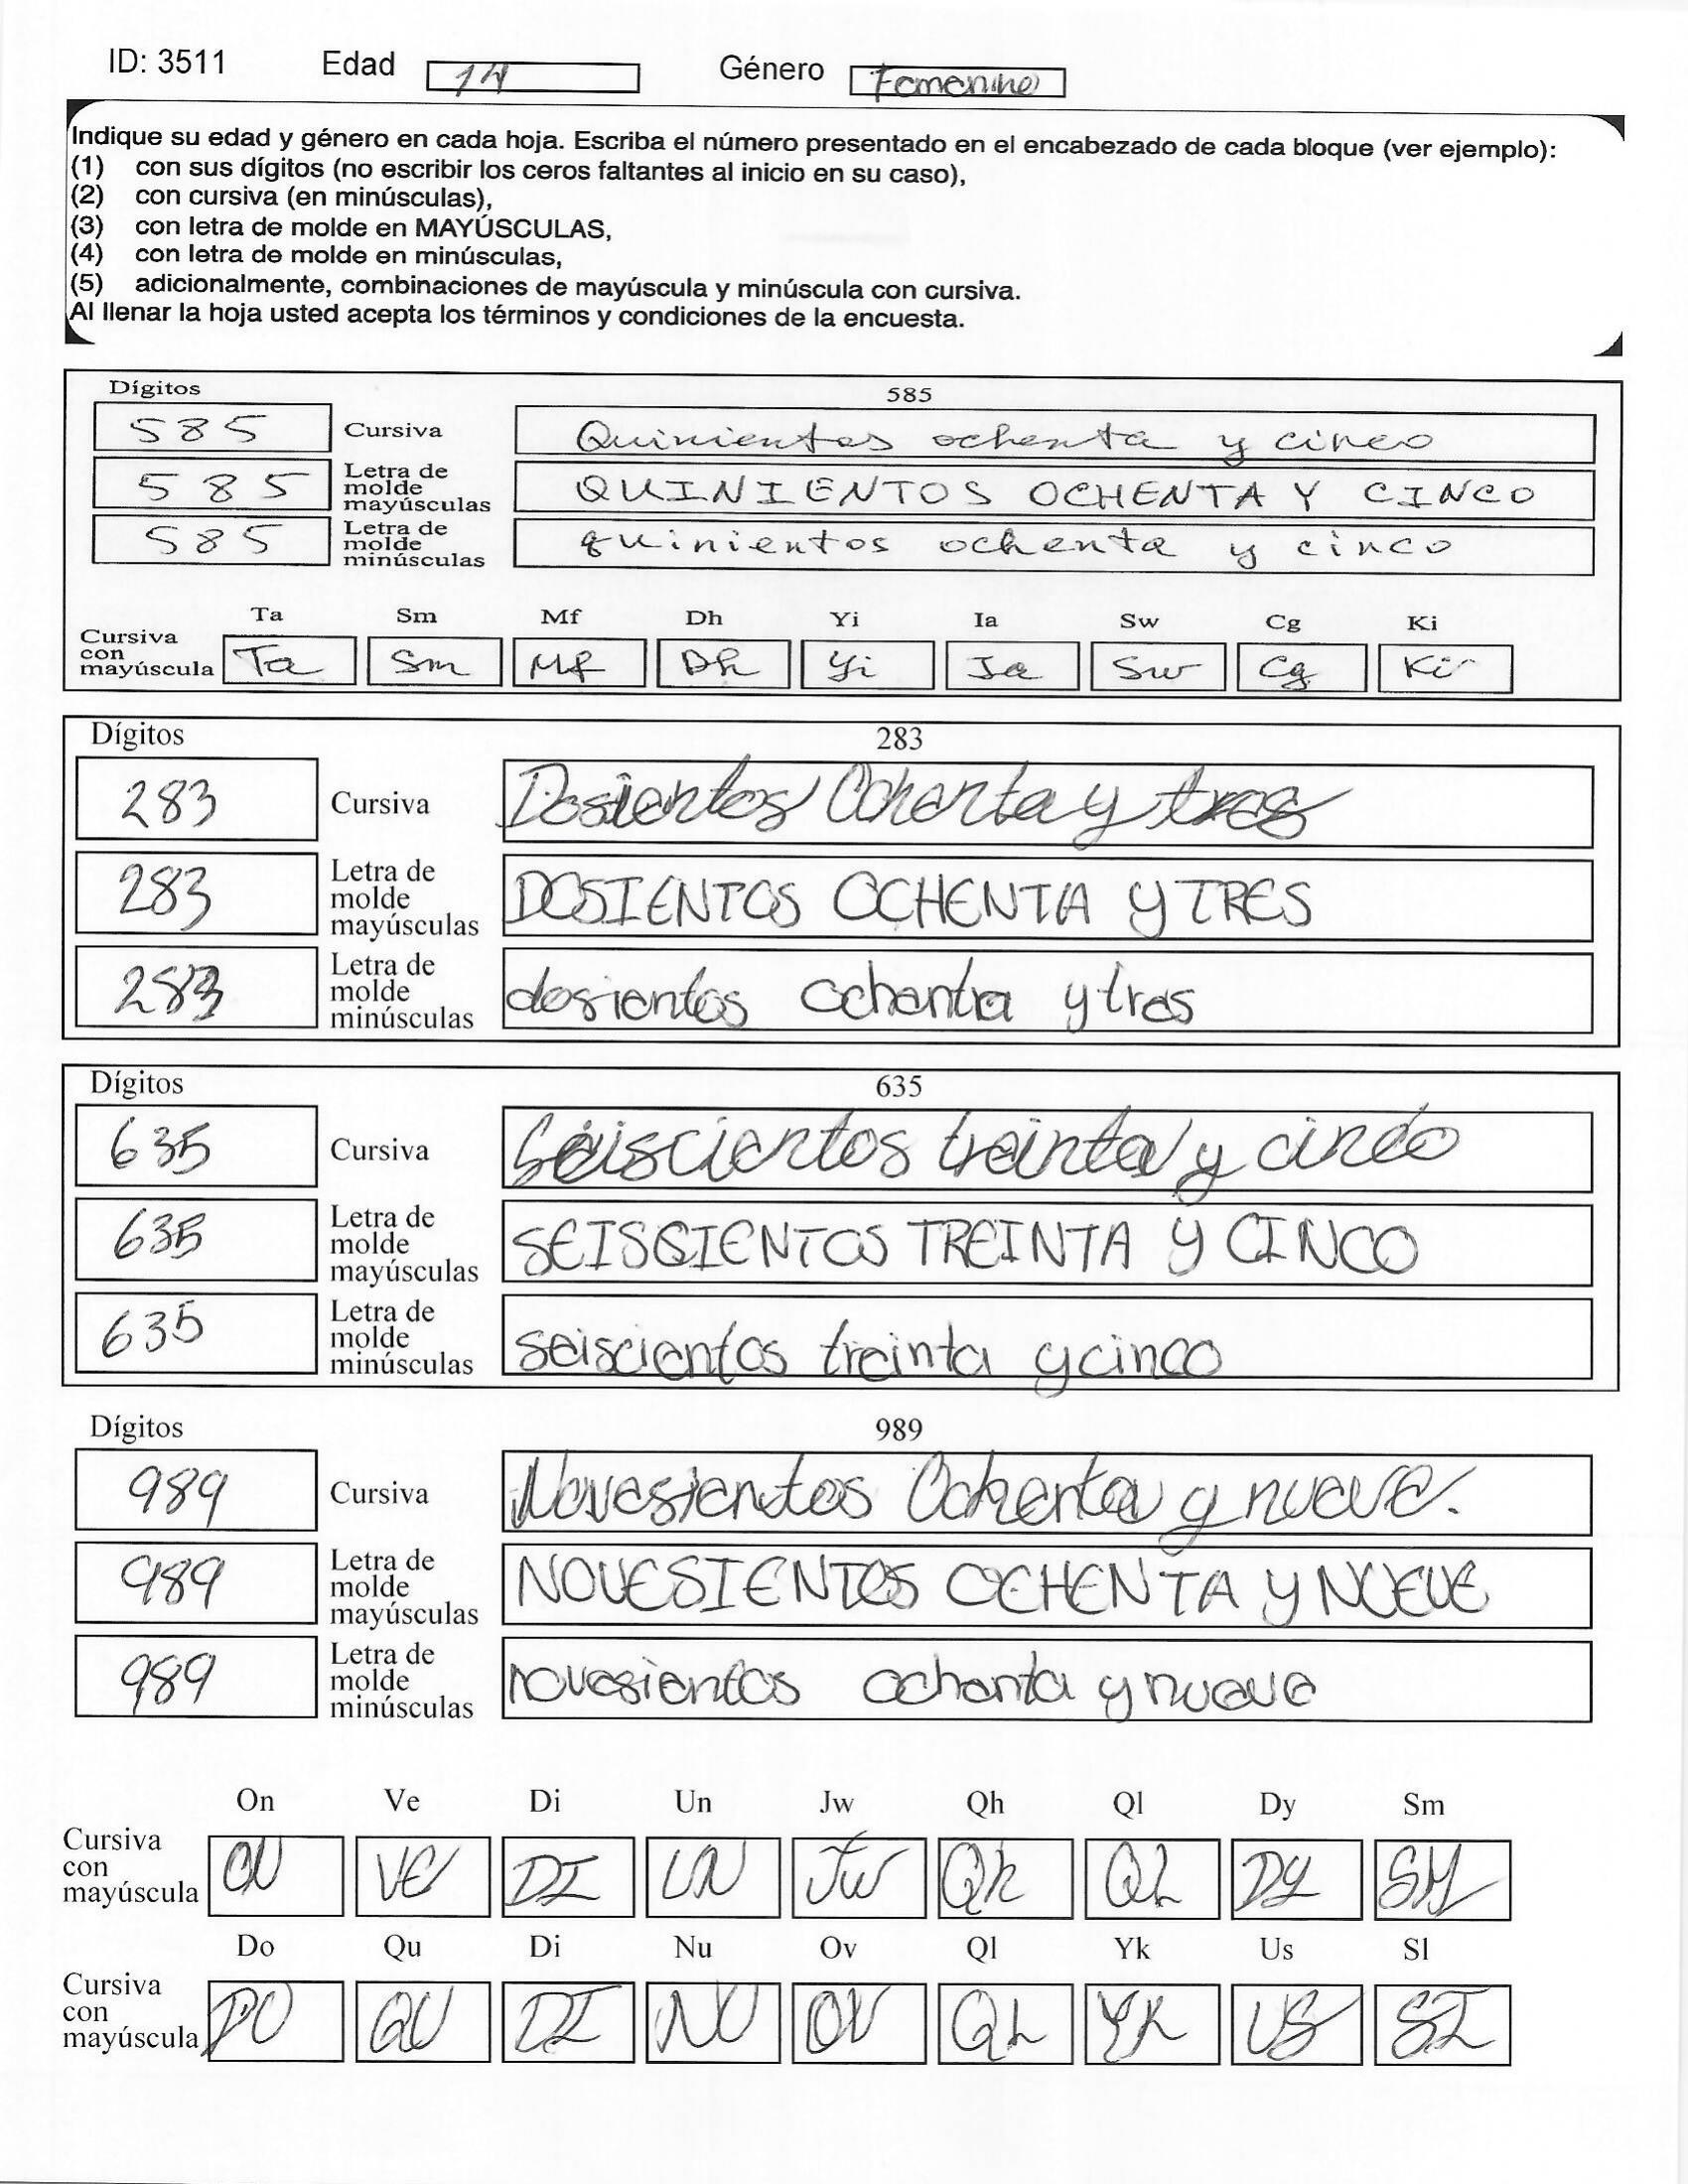 ID: 3511 Edad 14 Género Femenino
Indique su edad y género en cada hoja. Escriba el número presentado en el encabezado de cada bloque (ver ejemplo):
(1) con sus dígitos (no escribir los ceros faltantes al inicio en su caso),
(2) con cursiva (en minúsculas),
(3) con letra de molde en MAYÚSCULAS,
(4) con letra de molde en minúsculas,
(5) adicionalmente, combinaciones de mayúscula y minúscula con cursiva.
Al llenar la hoja usted acepta los términos y condiciones de la encuesta.
Dígitos 585
585 Cursiva Quinientos ochenta y cinco
585 Letra de molde mayúsculas QUINIENTOS OCHENTA Y CINCO
585 Letra de molde minúsculas quinientos ochenta y cinco
Ta Sm Mf Dh Yi Ia Sw Cg Ki
Cursiva con mayúscula Ta Sm Mf Dh Yi Ia Sw Cg Ki
Dígitos 283
283 Cursiva Dosientos Ochenta y tres
283 Letra de molde mayúsculas DOSIENTOS OCHENTA Y TRES
283 Letra de molde minúsculas dosientos ochenta y tres
Dígitos 635
635 Cursiva Seiscientos treinta y cinco
635 Letra de molde mayúsculas SEISCIENTOS TREINTA Y CINCO
635 Letra de molde minúsculas seiscientos treinta y cinco
Dígitos 989
989 Cursiva Novesientos Ochenta y nueve.
989 Letra de molde mayúsculas NOVESIENTOS OCHENTA Y NUEVE
989 Letra de molde minúsculas novesientos ochenta y nueve
On Ve Di Un Jw Qh Ql Dy Sm
Cursiva con mayúscula ON VE DI UN Jw Qh QL DY SM
Do Qu Di Nu Ov Ql Yk Us Sl
Cursiva con mayúscula DO QU DI NU OV QL YK US SI